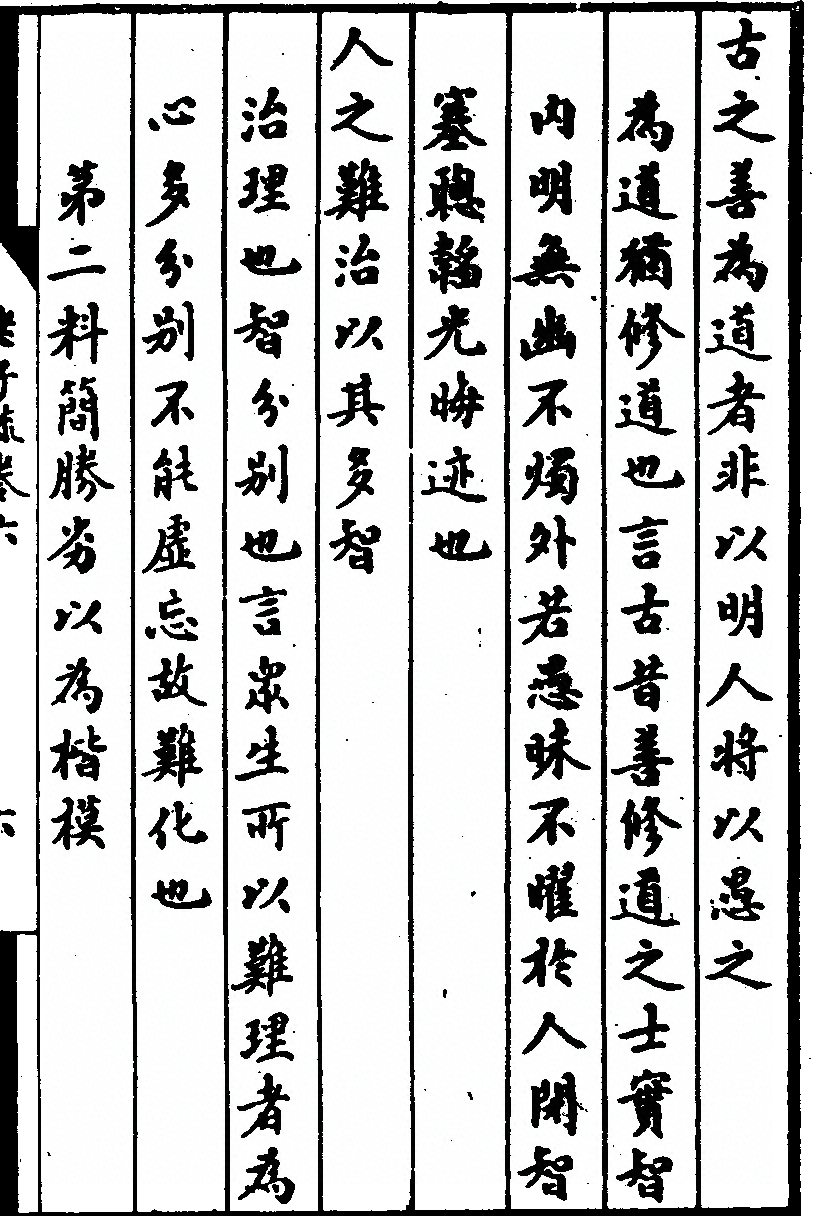 古之善為道者非以明人將以愚之
為道猶修道也言古昔善修道之士實智
内明無幽不燭外若愚昧不曜於人閉智
塞聰韜光晦迹也
人之難治以其多智
治理也智分别也言眾生所以難理者為
心多分别不能虛忘故難化也
第二料簡勝劣以為楷模